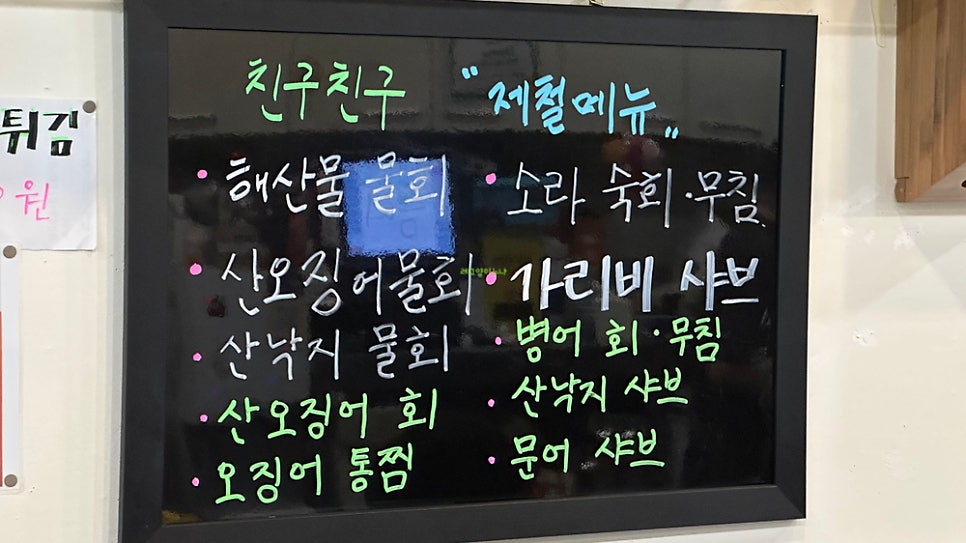 친구친구
"제철메뉴"
· 해산물 물회
· 산오징어물회
· 산낙지 물회
· 산오징어 회
· 오징어 통찜
· 소라 숙회·무침
· 가리비 샤브
· 병어 회·무침
· 산낙지 샤브
· 문어 샤브
튀김
원